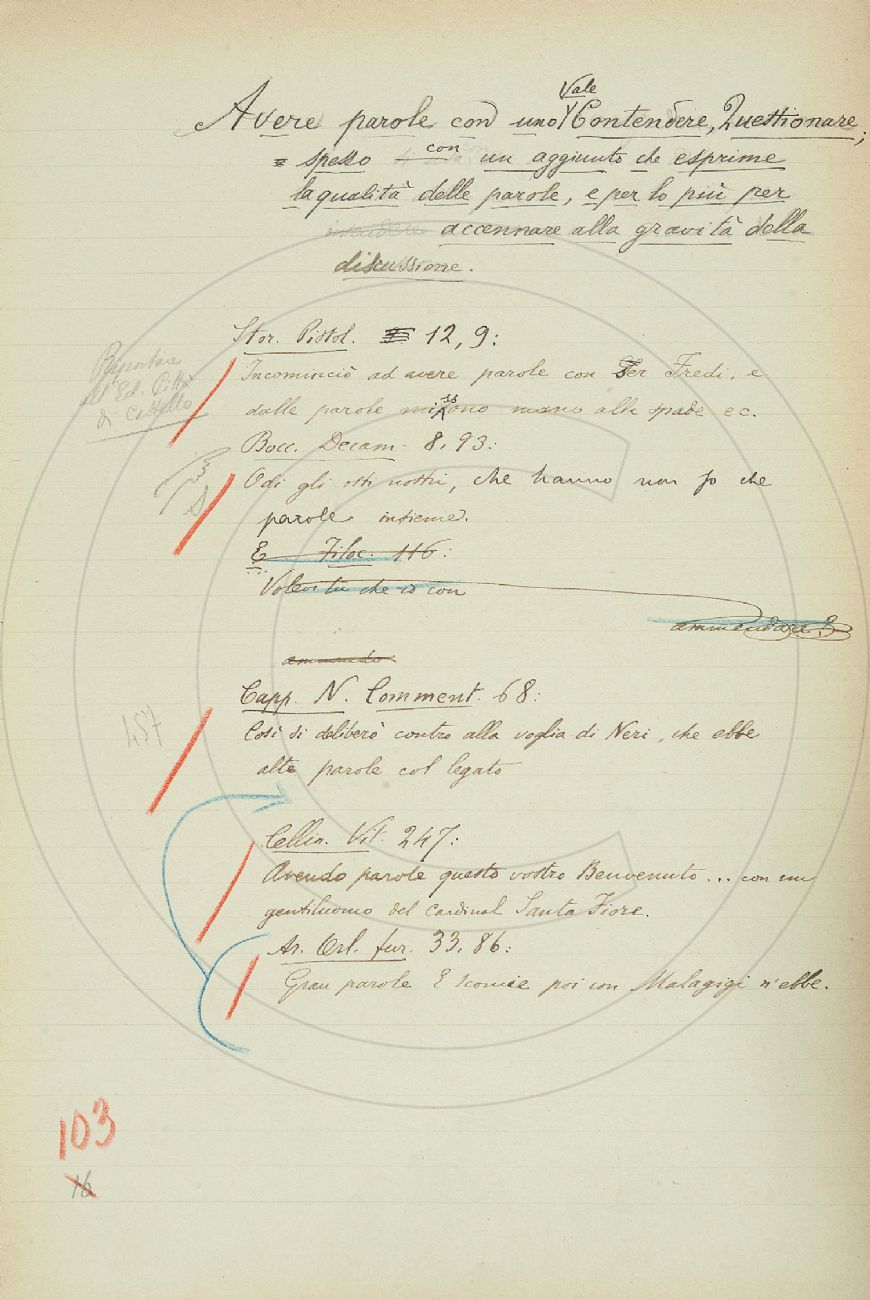 Vale
Avere parole con uno Contendere, Questionare;
spesso con un aggiunto che esprime
la qualità delle parole, e per lo più per
intendere accennare alla gravità della
discussione.
Stor. Pistol. 12, 9:
Riportare
all'Ed. Città
di Castello
Incominciò ad avere parole con Ser Fredi, e
dalle parole missono mano alle spade ec.
Bocc. Decam. 8. 93:
Odi gli osti nostri, che hanno non so che
parole insieme.
E Filoc. 116:
Volevi tu che io con
ammendare
ammendo
Capp. N. Comment. 68:
457
Così si deliberò contro alla voglia di Neri, che ebbe
alte parole col legato
Cellin. Vit. 247:
Avendo parole questo vostro Benvenuto... con un
gentiluomo del cardinal Santa Fiore.
Ar. Orl. fur. 33. 86:
Gran parole E sconcie poi con Malagigi n'ebbe.
103
16